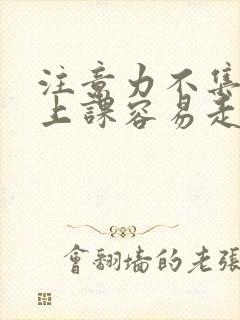 注意力不集
上課容易走
會翻墻的老張